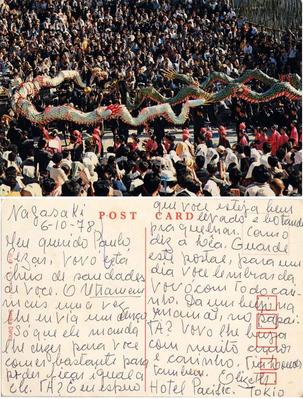 Nagasaki
6-10-78
POST CARD
Meu querido Paulo
Cezar, Vovô está
cheio de saudades
de você. O Ultraman
mais uma vez
lhe envia um abraço
Só que ele manda
lhe dizer para você
comer bastante para
poder ficar igual a
ele. TÁ? Eu espero
que você esteja bem
levado e botando
pra quebrar. Como
diz a Léa. Guarde
este postal, para um
dia você lembrar da
vovó com todo cari-
nho. Dá um beijo na
mamãe, no papai
TÁ? Vovô lhe beija
com muito amor
e carinho.
também.
Hotel Pacific. Tokio